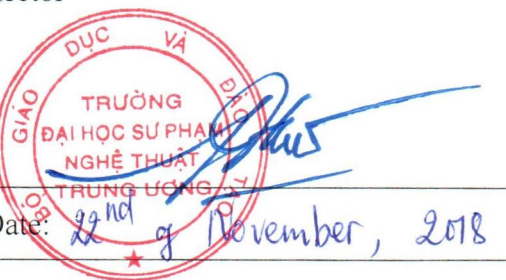 BỘ GIÁO DỤC VÀ ĐÀO TẠO
TRƯỜNG
ĐẠI HỌC SƯ PHẠM
NGHỆ THUẬT
TRUNG ƯƠNG
Date: 22nd of November, 2018